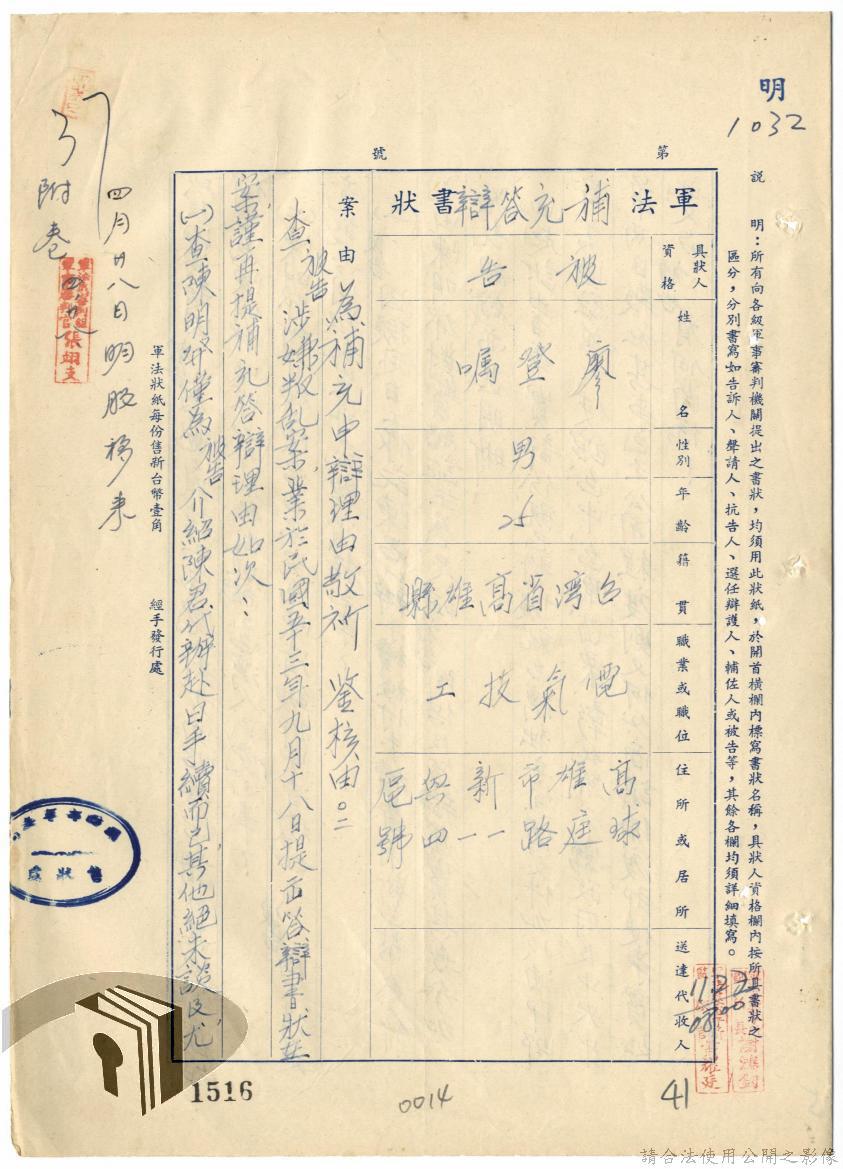 明
1032
說明：所有向各級軍事審判機關提出之書狀，均須用此狀紙，於開首橫欄內標寫書狀名稱，具狀人資格欄內按所具書狀之
區分，分別書寫如告訴人、聲請人、抗告人、選任辯護人、輔佐人或被告等，其餘各欄均須詳細填寫。
第 號
軍法補充答辯書狀
具狀人資格 被告
姓名 廖登嘱
性別 男
年齡 25
籍貫 台湾省高雄縣
職業或職位 電氣技工
住所或居所 高雄市新興區
球庭路一一四號
送達代收人
案由 為補充申辯理由敬祈 鑒核由。
查被告涉嫌叛乱案，業於民國五十三年九月十八日提出答辯書狀在
案，謹再提補充答辯理由如次：
(一)查陳明發僅為被告介紹陳君代辦赴日手續而已，其他絕未談及，尤
軍法狀紙每份售新台幣壹角 經手發行處
四月廿八日明股移來
附卷
張翊支
售狀處
1122
0800
1516
0014
41
請合法使用公開之影像